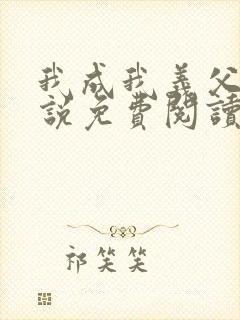 我成我義父
說免費閱讀
祁笑笑